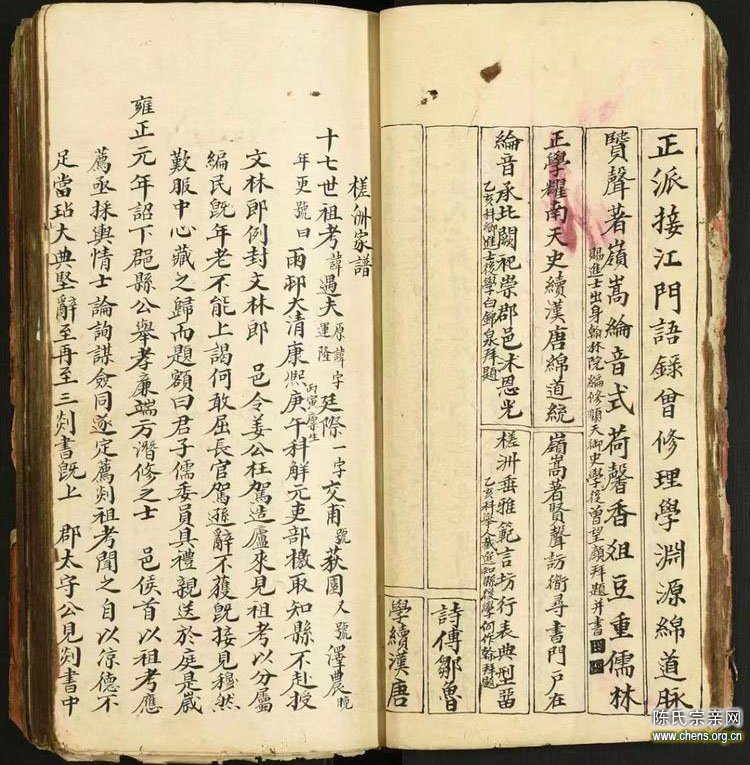 正派接江門語錄曾修理學淵源綿道脉
賢聲著嶺嵩綸音式荷馨香俎豆重儒林
賜進士出身翰林院編修順天御史學後曾望顏拜題并書
正學耀南天史續漢唐綿道統
嶺嵩著賢聲訪衡尋書門戶在
綸音承北闕祀崇郡邑沐恩光
乙亥科銜進士後學白錦泉拜題
槎洲垂雅範言坊行表典型留
乙亥科舉人截選知縣後學何作翰拜題
詩傳鄒魯
學續漢唐
槎洲家譜
十七世祖考諱遇夫原諱運隆字廷際一字交甫號荻園又號澤農晚
年更號曰雨邨大清康熙庚午科解元吏部檄取知縣不赴授
丙寅廩生
文林郎例封文林郎 邑令姜公枉駕造廬來見祖考以分屬
編民旣年老不能上謁何敢屈長官駕遜辭不獲旣接見穆然
歎服中心藏之歸而題額曰君子儒委員具禮親送於庭是歲
雍正元年詔下郡縣公舉孝廉端方潛修之士 邑侯首以祖考應
薦亟採輿情士論詢謀僉同遂定薦剡祖考聞之自以涼德不
足當玷大典堅辭至再至三剡書旣上 郡太守公見剡書中
陈氏宗亲网
www.chens.org.cn